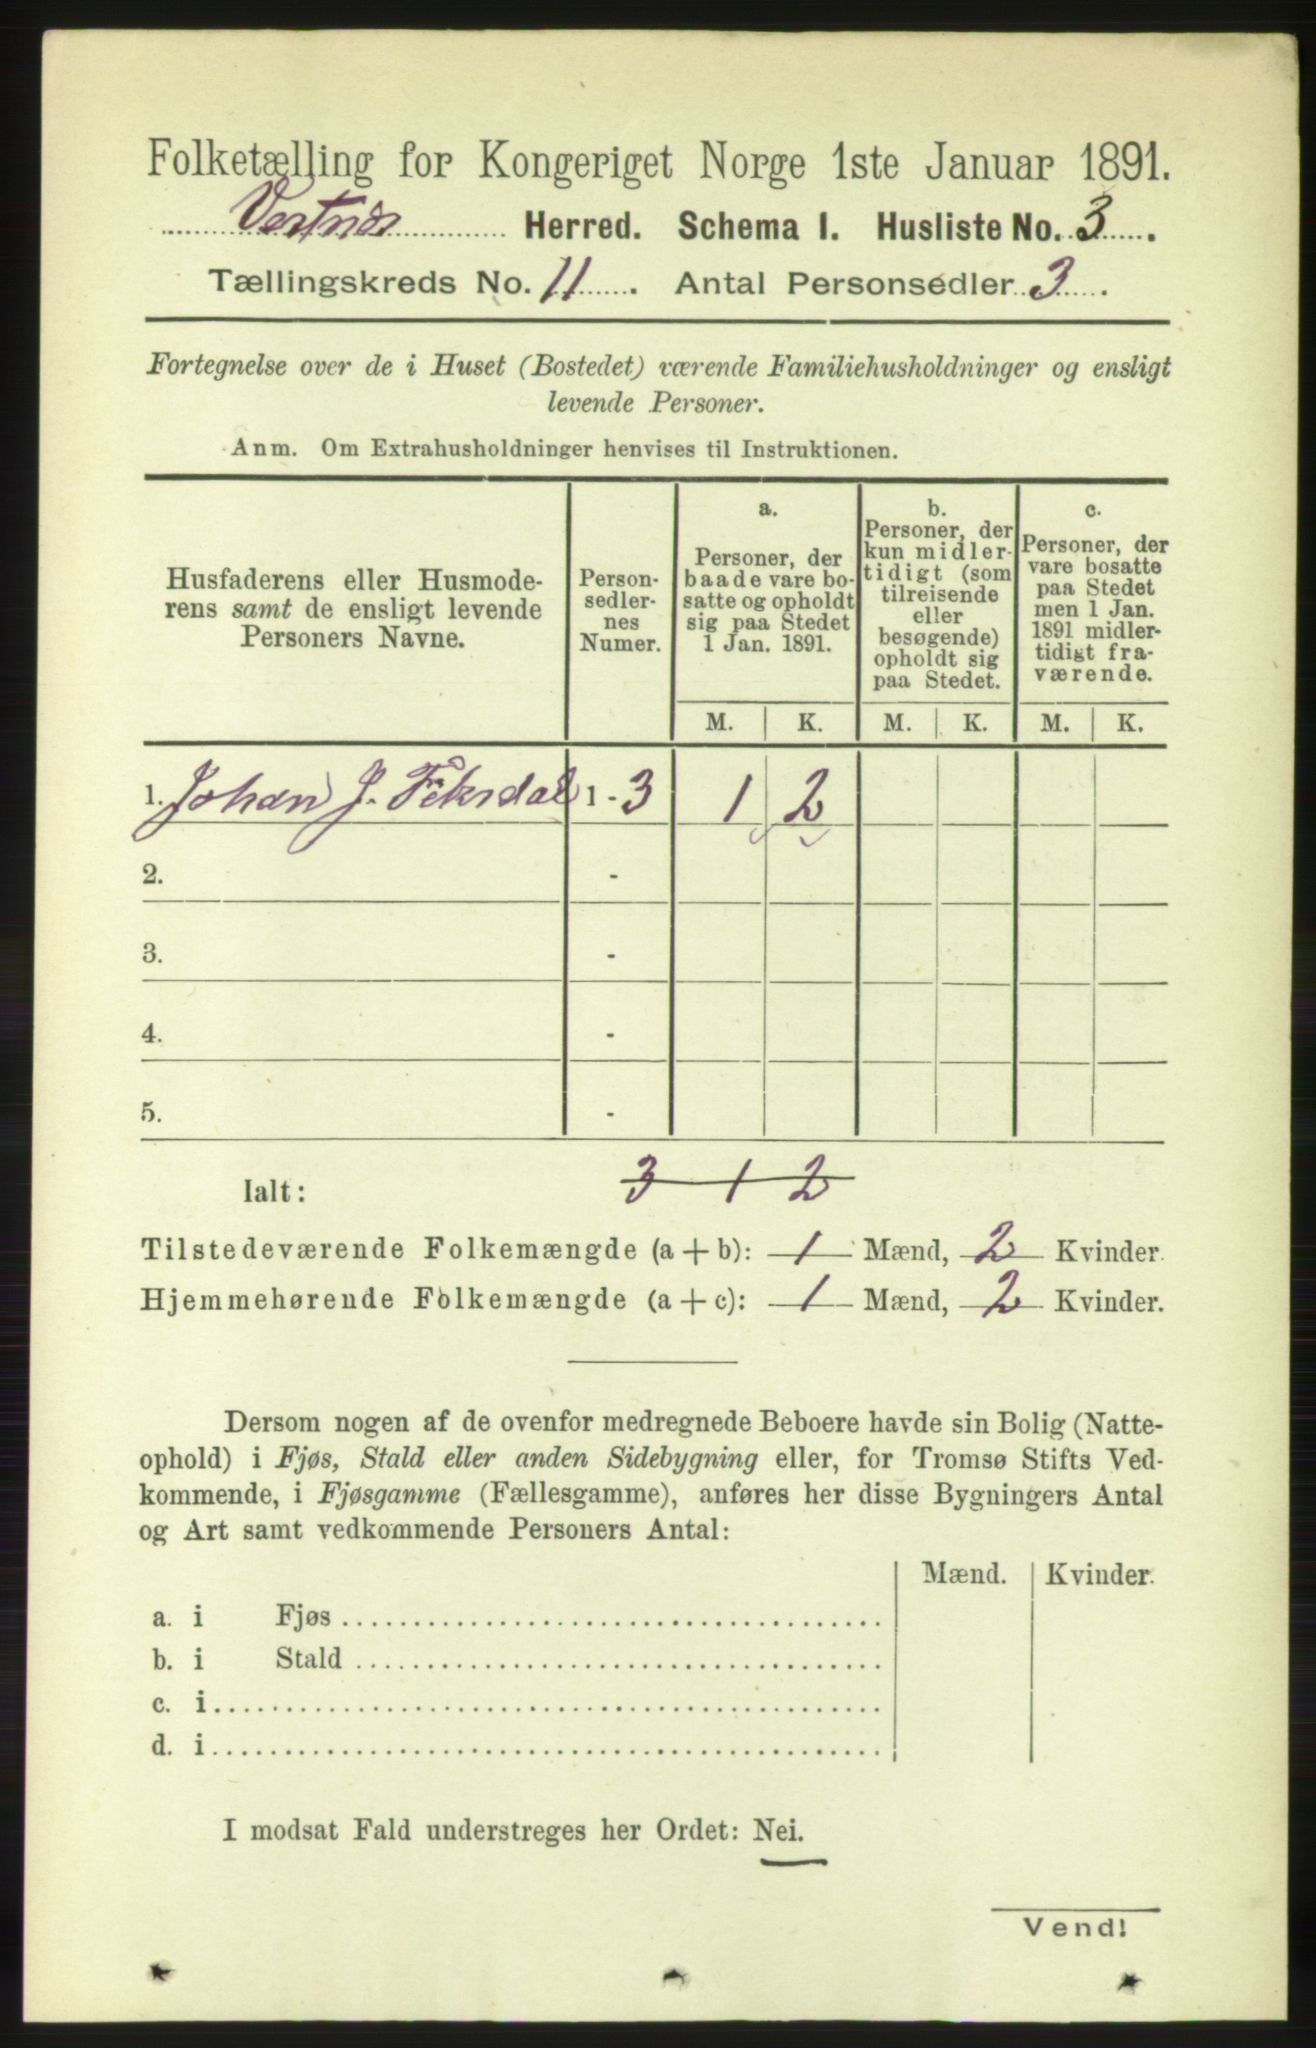 Folketælling for Kongeriget Norge 1ste Januar 1891.
Vestnæs Herred. Schema I. Husliste No. 3.
Tællingskreds No. 11. Antal Personsedler 3.
Fortegnelse over de i Huset (Bostedet) værende Familiehusholdninger og ensligt
levende Personer.
Anm. Om Extrahusholdninger henvises til Instruktionen.
Husfaderens eller Husmode-
rens samt de ensligt levende
Personers Navne.
Person-
sedler-
nes
Numer.
a.
Personer, der
baade vare bo-
satte og opholdt
sig paa Stedet
1 Jan. 1891.
b.
Personer, der
kun midler-
tidigt (som
tilreisende
eller
besøgende)
opholdt sig
paa Stedet.
c.
Personer, der
vare bosatte
paa Stedet
men 1 Jan.
1891 midler-
tidigt fra-
værende.
M. K. M. K. M. K.
1. Johan J. Fiksdal 1 - 3 1 2
2. -
3. -
4. -
5. -
Ialt: 3 1 2
Tilstedeværende Folkemængde (a + b): 1 Mænd, 2 Kvinder.
Hjemmehørende Folkemængde (a + c): 1 Mænd, 2 Kvinder.
Dersom nogen af de ovenfor medregnede Beboere havde sin Bolig (Natte-
ophold) i Fjøs, Stald eller anden Sidebygning eller, for Tromsø Stifts Ved-
kommende, i Fjøsgamme (Fællesgamme), anføres her disse Bygningers Antal
og Art samt vedkommende Personers Antal:
Mænd. Kvinder.
a. i Fjøs
b. i Stald
c. i
d. i
I modsat Fald understreges her Ordet: Nei.
Vend!